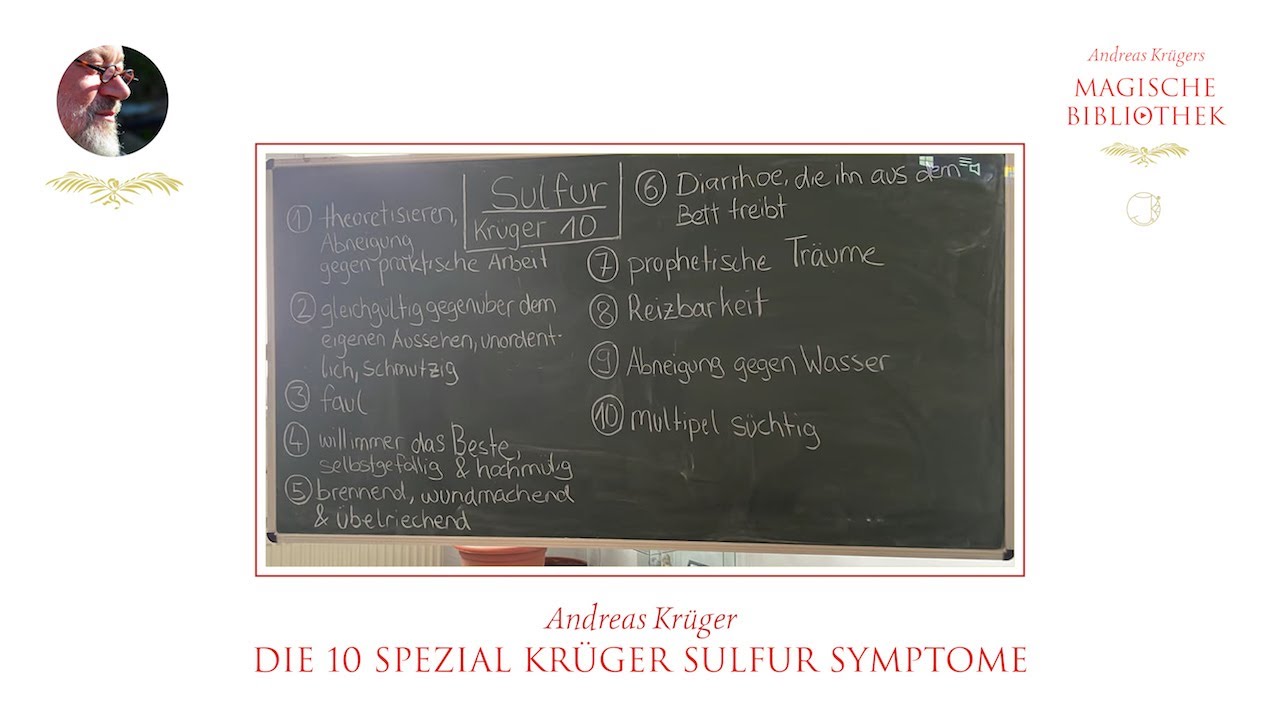 Andreas Krügers
MAGISCHE
BIBLIOTHEK
Sulfur
Krüger 10
① theoretisieren,
Abneigung
gegen praktische Arbeit
② gleichgültig gegenuber dem
eigenen Aussehen, unordent-
lich, schmutzig
③ faul
④ will immer das Beste,
selbstgefällig & hochmütig
⑤ brennend, wundmachend
& übelriechend
⑥ Diarrhoe, die ihn aus dem
Bett treibt
⑦ prophetische Träume
⑧ Reizbarkeit
⑨ Abneigung gegen Wasser
⑩ multipel süchtig
Andreas Krüger
DIE 10 SPEZIAL KRÜGER SULFUR SYMPTOME